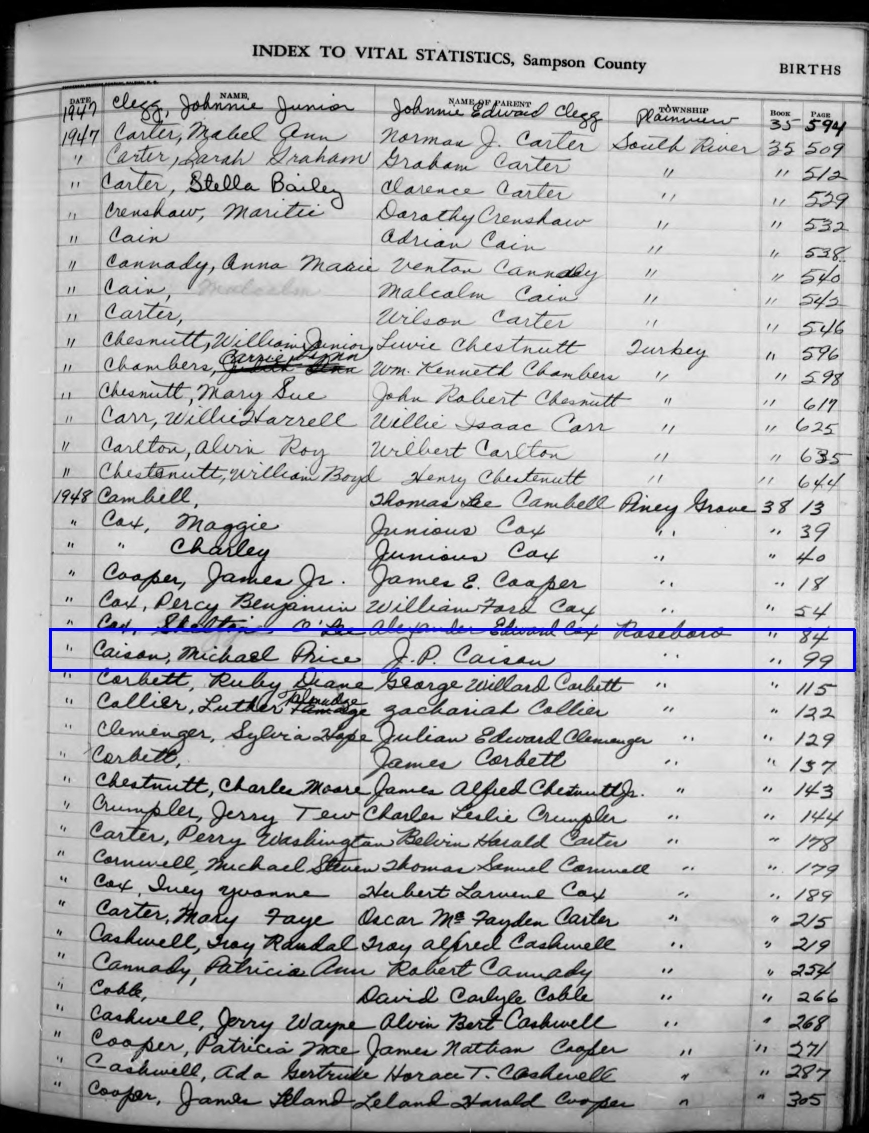 INDEX TO VITAL STATISTICS, Sampson County BIRTHS
DATE NAME NAME OF PARENT TOWNSHIP BOOK PAGE
1947 Clegg, Johnnie Junior Johnnie Edward Clegg Plainview 35 594
1947 Carter, Mabel Ann Norman J. Carter South River 35 509
" Carter, Sarah Graham Graham Carter " " 512
" Carter, Stella Bailey Clarence Carter " " 529
" Crenshaw, Maritii Dorathy Crenshaw " " 532
" Cain Adrian Cain " " 538
" Cannady, Anna Marie Venton Cannady " " 540
" Cain, Malcolm Malcolm Cain " " 542
" Carter, Wilson Carter " " 546
" Chesnutt, William Junior, Luvie Chestnutt Turkey " 596
" Chambers, Carrie Lynn Wm. Kenneth Chambers " " 598
" Chesnutt, Mary Sue John Robert Chesnutt " " 617
" Carr, Willie Harrell Willie Isaac Carr " " 625
" Carlton, Alvin Roy Wilbert Carlton " " 635
" Chestnutt, William Boyd Henry Chestenutt " " 644
1948 Cambell, Thomas Lee Cambell Piney Grove 38 13
" Cox, Maggie Junious Cox " " 39
" " Charley Junious Cox " " 40
" Cooper, James Jr. James E. Cooper " " 18
" Cox, Percy Benjamin William Ford Cox " " 54
" Cox, Shelton O'Lee Alexander Edward Cox Roseboro " 84
" Caison, Michael Price J. P. Caison " " 99
" Corbett, Ruby Diane George Willard Corbett " " 115
" Collier, Luther Zachariah Collier " " 122
" Clemenger, Sylvia Hope Julian Edward Clemenger " " 129
" Corbett, James Corbett " 137
" Chestnutt, Charles Moore James Alfred Chestnutt Jr. " " 143
" Crumpler, Jerry Tew Charles Leslie Crumpler " " 144
" Carter, Perry Washington Belvin Harald Carter " " 178
" Cornwell, Michael Steven Thomas Samuel Cornwell " " 179
" Cox, Iney Yvonne Herbert Larvene Cox " " 189
" Carter, Mary Faye Oscar Mc Fayden Carter " " 215
" Cashwell, Troy Randal Troy Alfred Cashwell " " 219
" Cannady, Patricia Ann Robert Cannady " " 254
" Coble, David Carlyle Coble " " 266
" Cashwell, Jerry Wayne Alvin Bert Cashwell " " 268
" Cooper, Patricia Mae James Nathan Cooper " " 271
" Cashwell, Ada Gertrude Horace T. Cashwell " " 287
" Cooper, James Leland Leland Harald Cooper " " 305